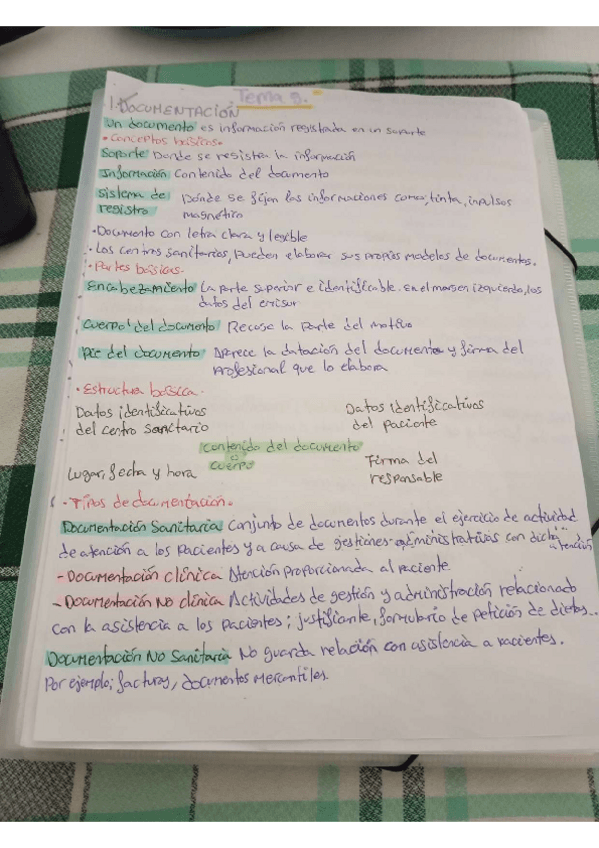 Tema 9.
1. DOCUMENTACIÓN
Un documento es información registrada en un soporte
• Conceptos básicos.
Soporte Donde se registra la información
Información Contenido del documento
Sistema de registro Dónde se fijan las informaciones como, tinta, impulsos
magnético
• Documento con letra clara y legible
• Los centros sanitarios, pueden elaborar sus propios modelos de documentos.
• Partes básicas.
Encabezamiento La parte superior e identificable. En el margen izquierdo, los
datos del emisor
Cuerpo del documento Recoge la parte del motivo
Pie del documento Aparece la datación del documento y firma del
profesional que lo elabora
• Estructura básica.
Datos identificativos Datos identificativos
del centro sanitario del paciente
Contenido del documento
o
cuerpo
Lugar, fecha y hora Firma del
responsable
• Tipos de documentación.
Documentación Sanitaria Conjunto de documentos durante el ejercicio de actividad
de atención a los pacientes y a causa de gestiones administrativas con dicha atención
- Documentación clínica Atención proporcionada al paciente.
- Documentación No clínica Actividades de gestión y administración relacionado
con la asistencia a los pacientes; justificante, formulario de petición de dietas..
Documentación No Sanitaria No guarda relación con asistencia a pacientes.
Por ejemplo; facturas, documentos mercantiles.